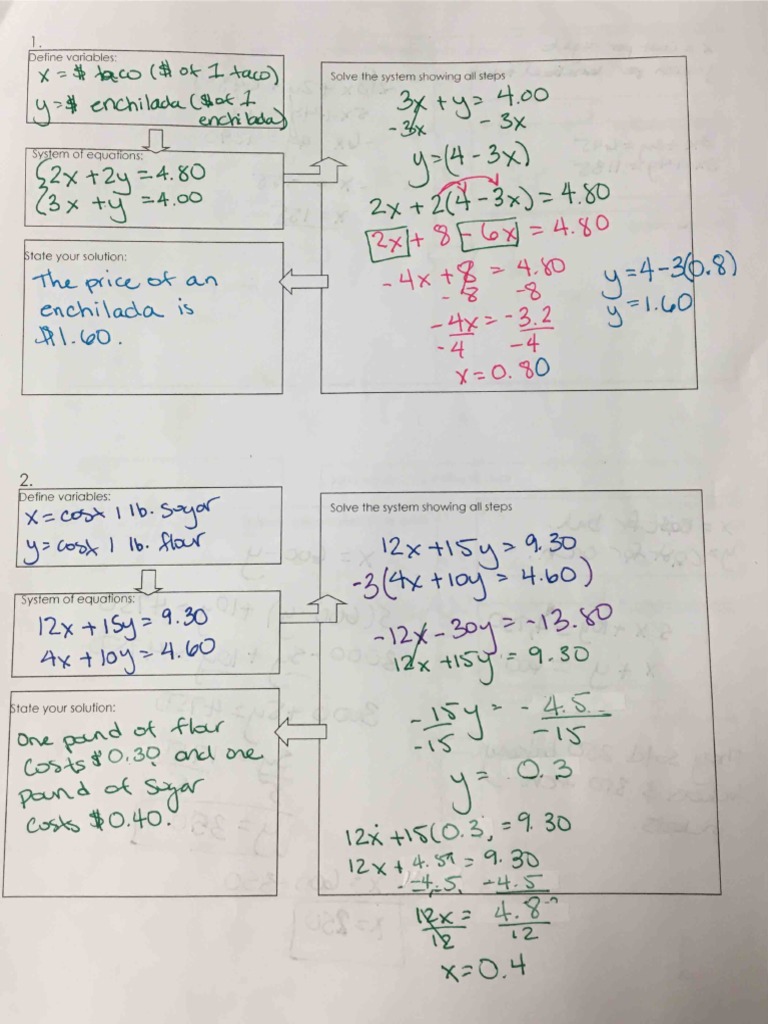 1.
Define variables:
x = $ taco ($ of 1 taco)
y = $ enchilada ($ of 1
enchilada)
System of equations:
2x + 2y = 4.80
3x + y = 4.00
State your solution:
The price of an
enchilada is
$1.60.
Solve the system showing all steps
3x + y = 4.00
-3x - 3x
y = (4 - 3x)
2x + 2(4 - 3x) = 4.80
2x + 8 - 6x = 4.80
-4x + 8 = 4.80
-8 -8
-4x = -3.2
-4 -4
x = 0.80
y = 4 - 3(0.8)
y = 1.60
2.
Define variables:
x = cost 1 lb. sugar
y = cost 1 lb. flour
System of equations:
12x + 15y = 9.30
4x + 10y = 4.60
State your solution:
One pound of flour
costs $0.30 and one
pound of sugar
costs $0.40.
Solve the system showing all steps
12x + 15y = 9.30
-3(4x + 10y = 4.60)
-12x - 30y = -13.80
12x + 15y = 9.30
-15y = -4.5
-15 -15
y = 0.3
12x + 15(0.3) = 9.30
12x + 4.5 = 9.30
-4.5 -4.5
12x = 4.8
12 12
x = 0.4